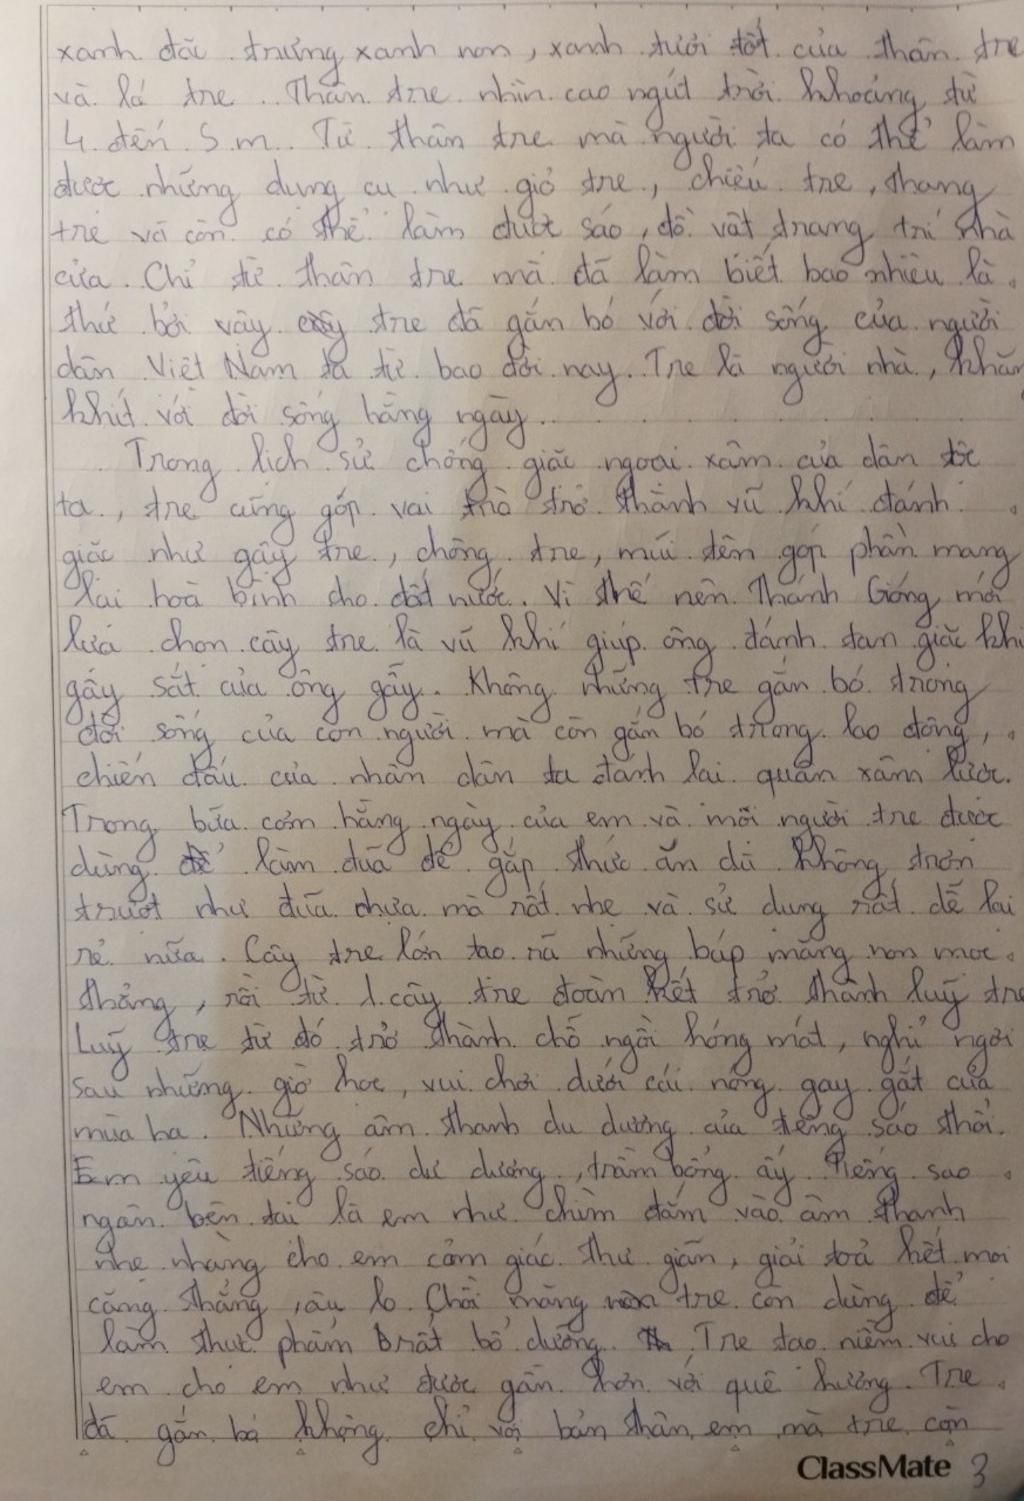 xanh dãi trưng xanh non, xanh tươi tốt của thân tre
và lá tre. Thân tre nhìn cao ngút trời khoảng từ
4 đến 5 m. Từ thân tre mà người ta có thể làm
được những dụng cụ như giỏ tre, chiếu tre, thang
tre và còn có thể làm được sáo, đồ vật trang trí nhà
cửa. Chỉ từ thân tre mà đã làm biết bao nhiêu là
thứ bởi vậy tre đã gắn bó với đời sống của người
dân Việt Nam ta từ bao đời nay. Tre là người nhà, khăn
khít với đời sống hằng ngày.
Trong lịch sử chống giặc ngoại xâm của dân tộc
ta, tre cũng góp vai trò trở thành vũ khí đánh
giặc như gậy tre, chông tre, mũi tên góp phần mang
lại hoà bình cho đất nước. Vì thế nên Thánh Gióng mới
lựa chọn cây tre là vũ khí giúp ông đánh tan giặc khi
gậy sắt của ông gãy. Không những tre gắn bó trong
đời sống của con người mà còn gắn bó trong lao động,
chiến đấu của nhân dân ta đánh lại quân xâm lược.
Trong bữa cơm hằng ngày của em và mỗi người tre được
dùng để làm đũa để gắp thức ăn dù không trơn
trượt như đũa nhựa mà rất nhẹ và sử dụng rất dễ lại
rẻ nữa. Cây tre lớn tạo ra những búp măng non mọc
thẳng, rồi từ 1 cây tre đoàn kết trở thành luỹ tre
Luỹ tre từ đó trở thành chỗ ngồi hóng mát, nghỉ ngơi
sau những giờ học, vui chơi dưới cái nóng gay gắt của
mùa hạ. Những âm thanh du dương của tiếng sáo thổi.
Em yêu tiếng sáo du dương, trầm bổng ấy. Tiếng sáo
ngân bên tai là em như chìm đắm vào âm thanh
nhẹ nhàng cho em cảm giác thư giãn, giải toả hết mọi
căng thẳng, âu lo. Chồi măng tre còn dùng để
làm thực phẩm rất bổ dưỡng. Tre tạo niềm vui cho
em cho em như được gần hơn với quê hương. Tre
đã gắn bó không chỉ với bản thân em mà tre còn
ClassMate 3